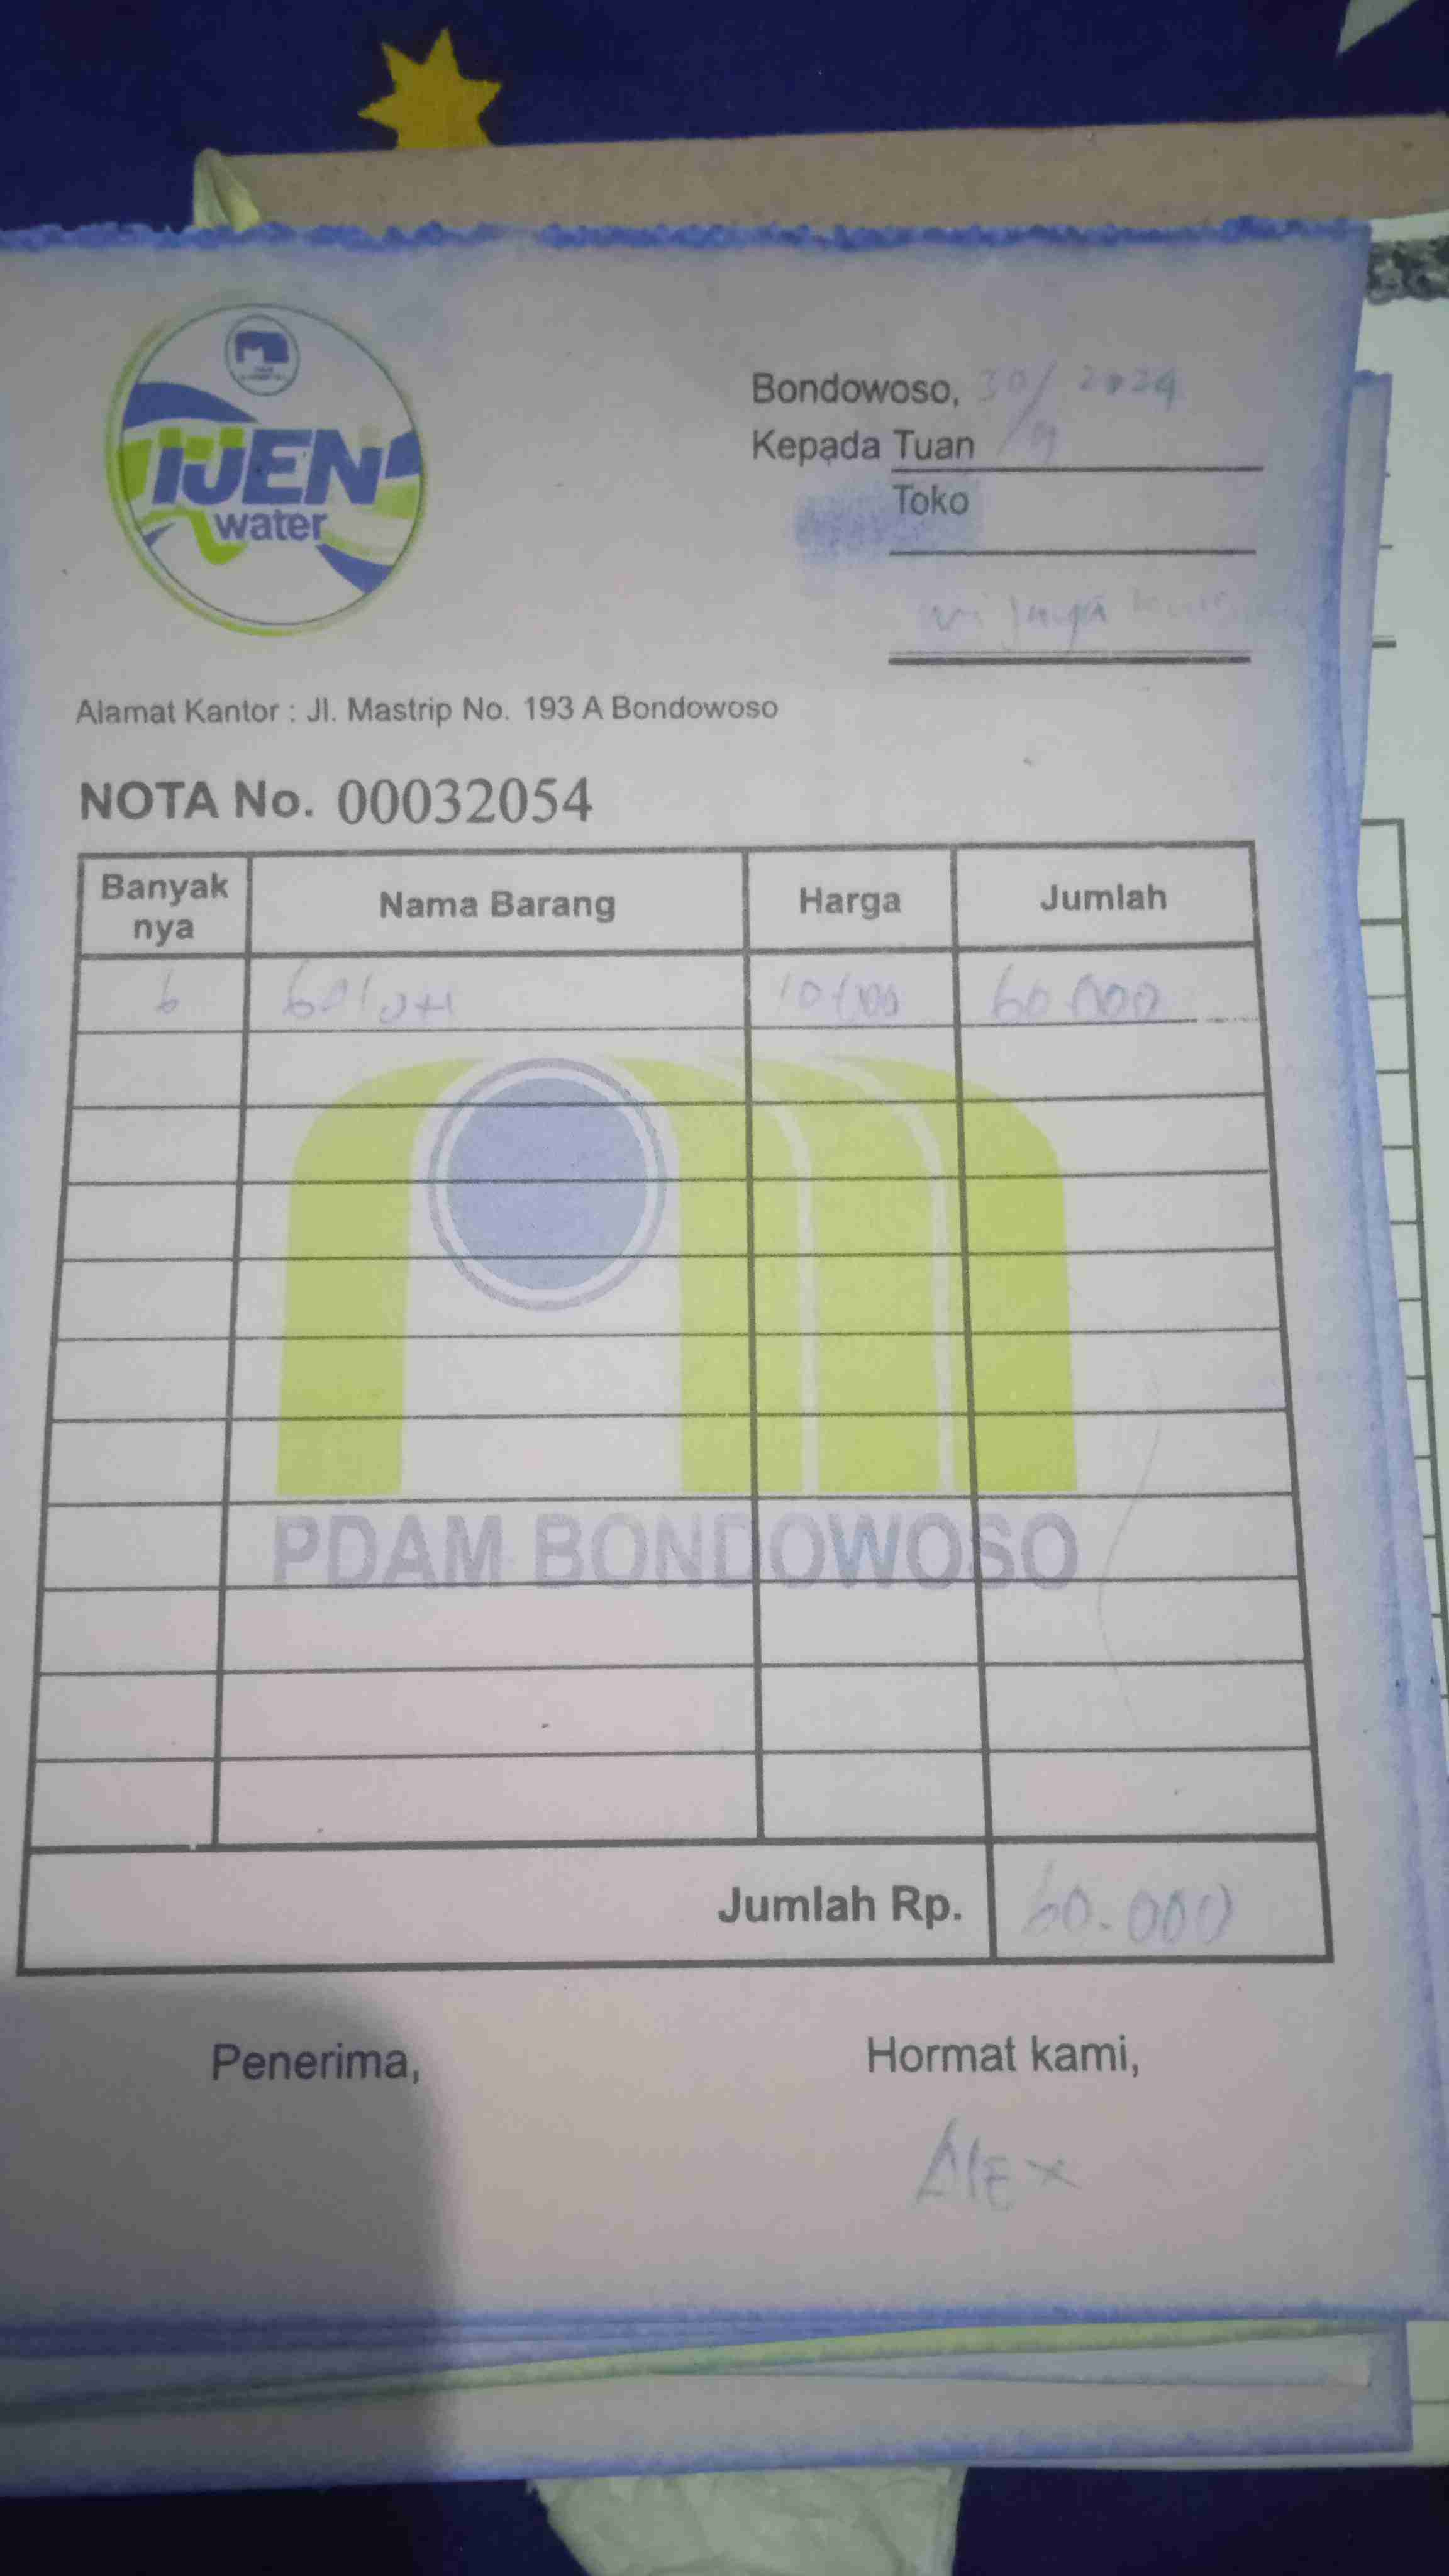 IJEN
water
Bondowoso, 30/9 2024
Kepada Tuan
Toko
Alamat Kantor : Jl. Mastrip No. 193 A Bondowoso
NOTA No. 00032054
Banyak nya Nama Barang Harga Jumlah
6 galon 10.000 60.000
PDAM BONDOWOSO
Jumlah Rp. 60.000
Penerima, Hormat kami,
AlEx